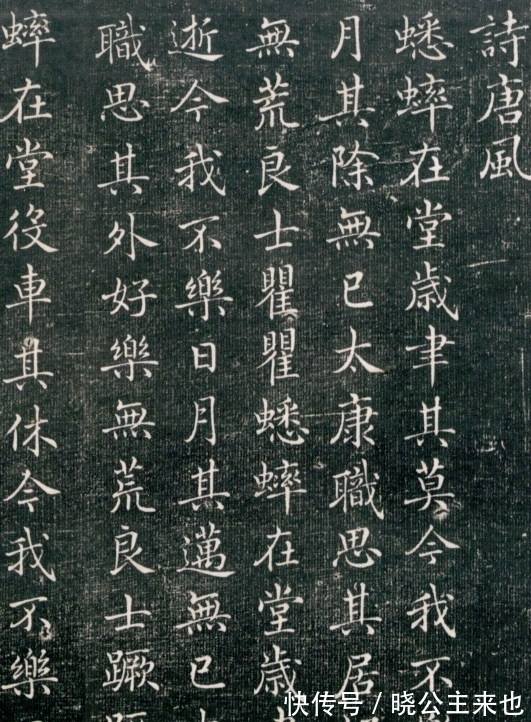 詩唐風
蟋蟀在堂歲聿其莫今我不
月其除無已太康職思其居
無荒良士瞿瞿蟋蟀在堂歲
逝今我不樂日月其邁無已
職思其外好樂無荒良士蹶
蟀在堂役車其休今我不樂
快传号 / 晓公主来也